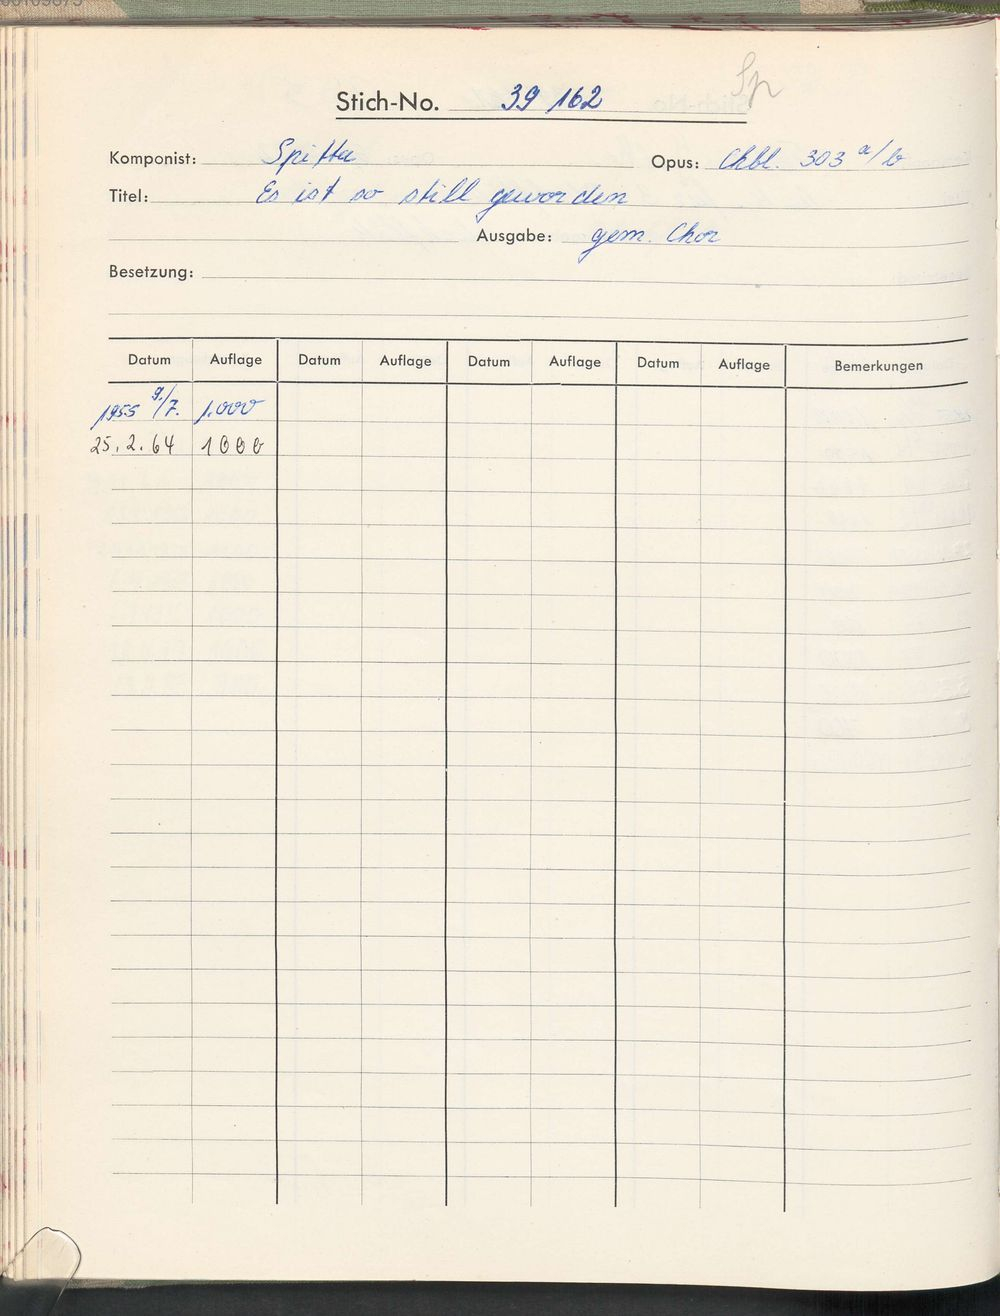 Sp
Stich-No. 39 162
Komponist: Spitta Opus: Chbl. 303 a/b
Titel: Es ist so still geworden
Ausgabe: gem. Chor
Besetzung:
Datum Auflage Datum Auflage Datum Auflage Datum Auflage Bemerkungen
1955 9./7. 1.000
25.2.64 1000